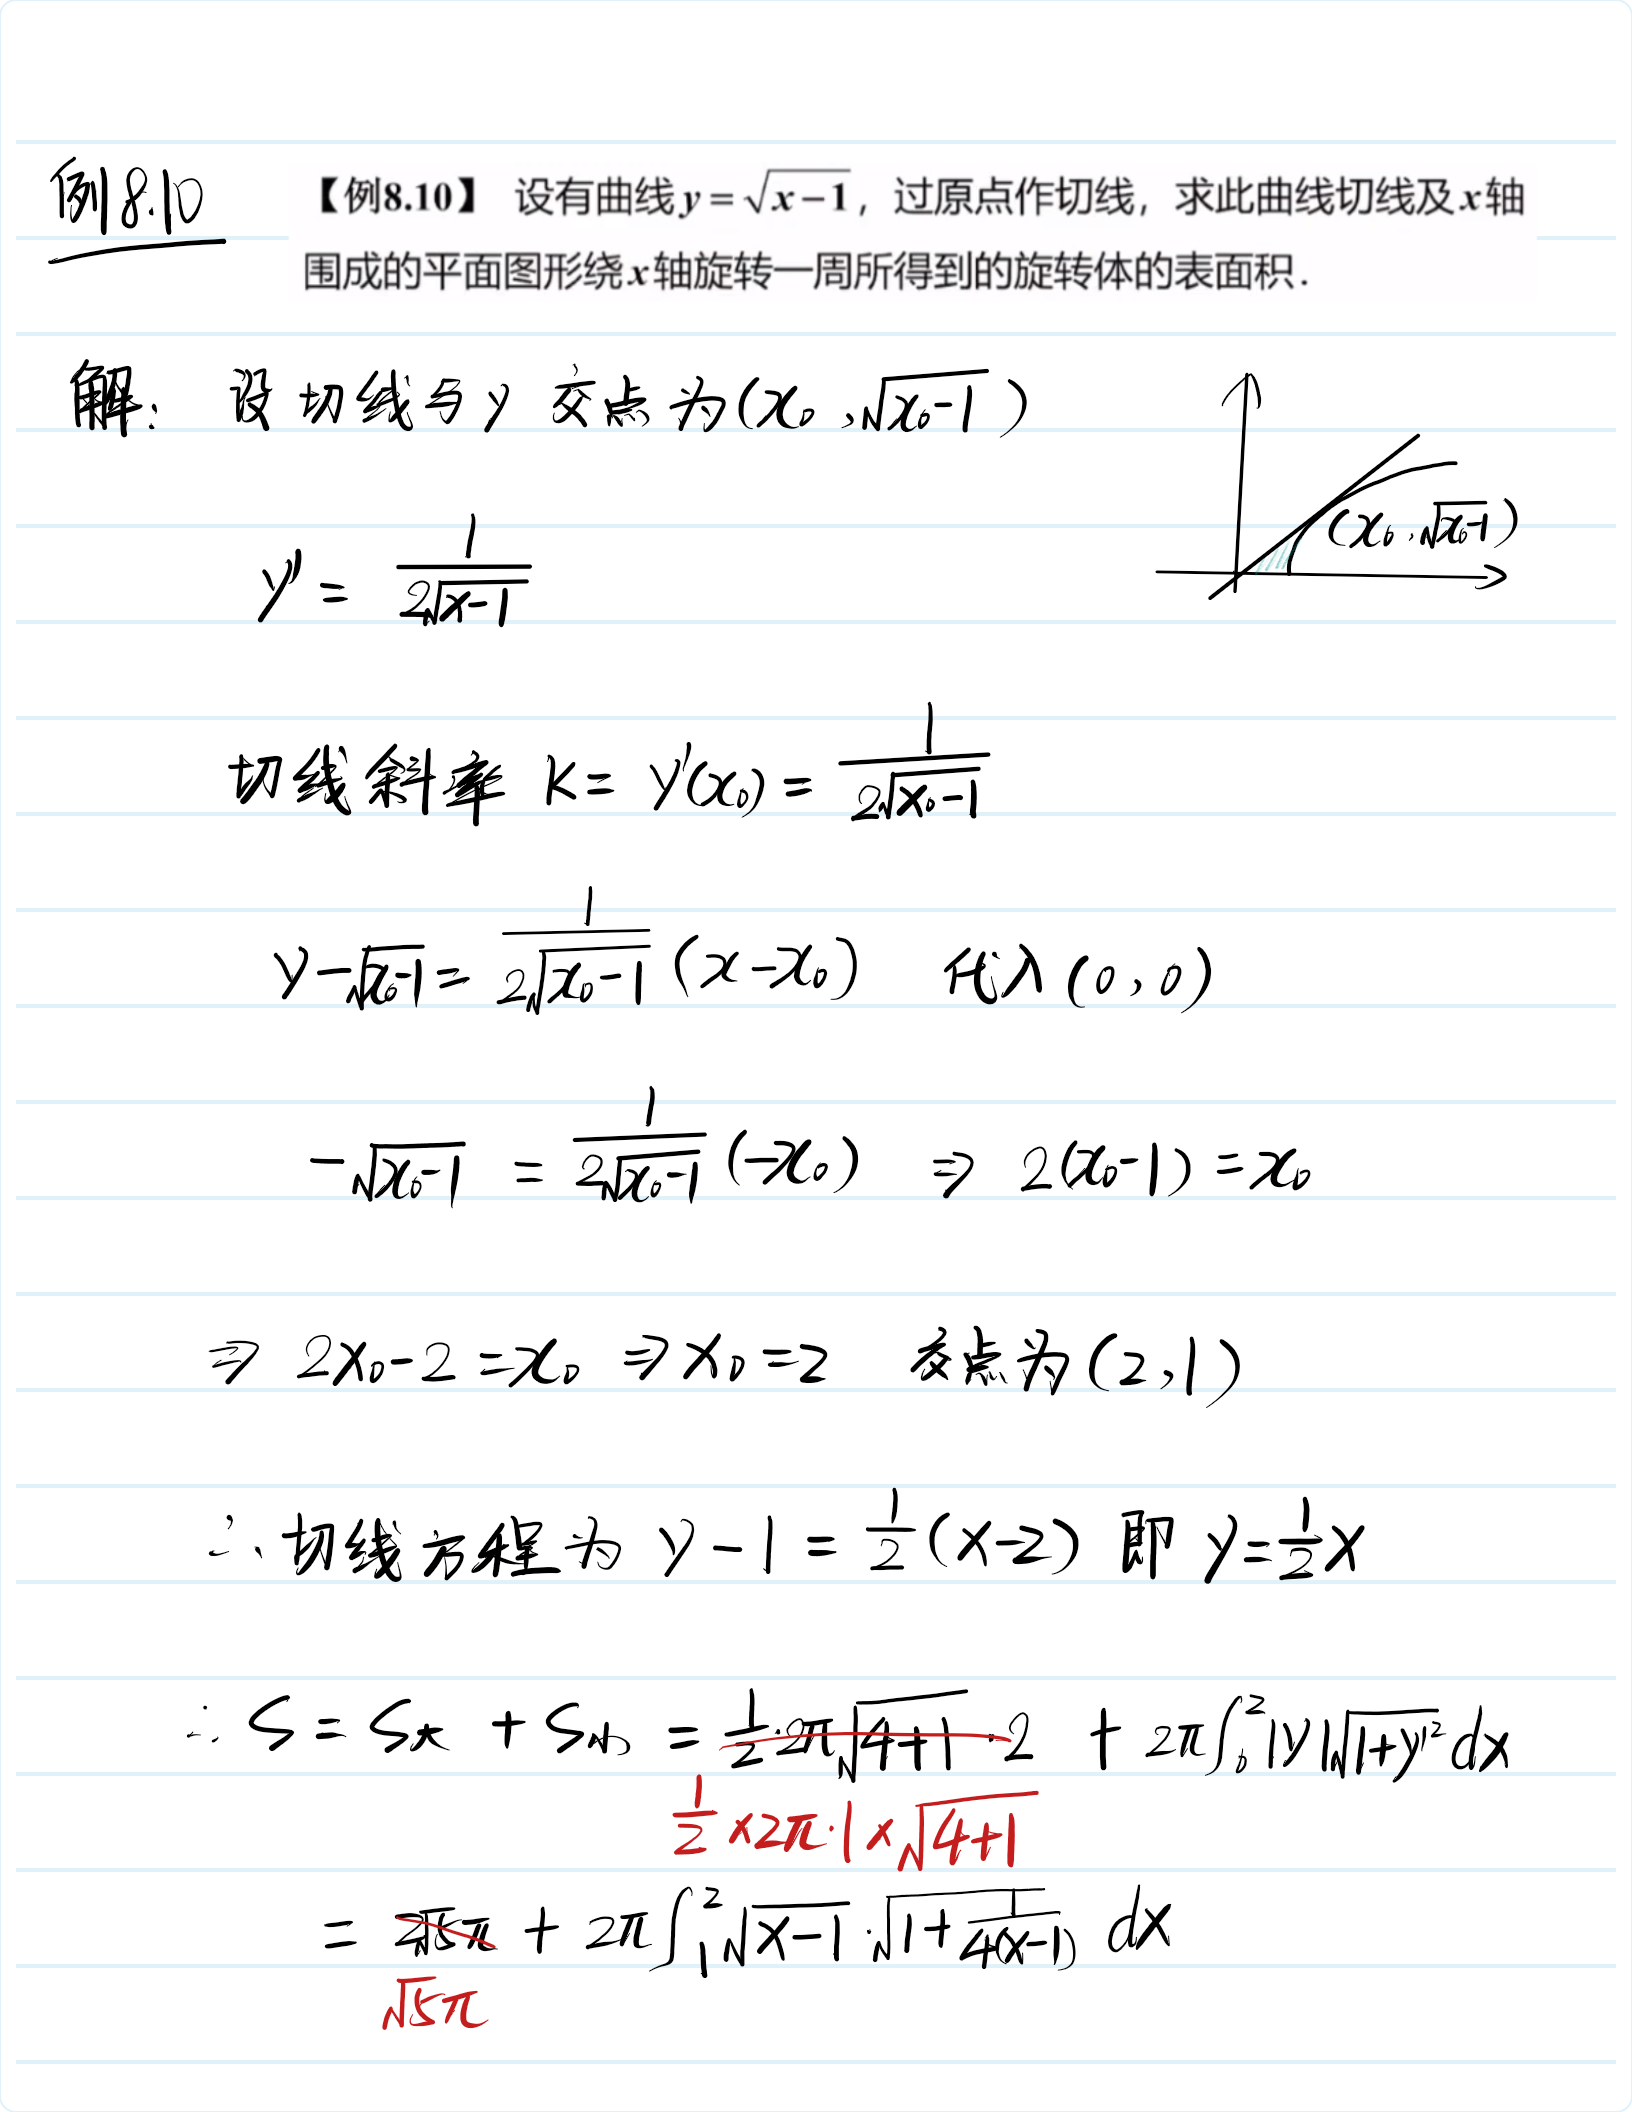 例8.10
【例8.10】 设有曲线 y = √(x−1)，过原点作切线，求此曲线切线及 x 轴
围成的平面图形绕 x 轴旋转一周所得到的旋转体的表面积．
解： 设切线与 y 交点为(x₀ ,√(x₀-1) )
(x₀ ,√(x₀-1))
y' = 1/(2√(x-1))
切线斜率 K = y'(x₀) = 1/(2√(x₀-1))
y-√(x₀-1) = 1/(2√(x₀-1)) (x-x₀) 代入(0,0)
-√(x₀-1) = 1/(2√(x₀-1)) (-x₀) ⇒ 2(x₀-1) = x₀
⇒ 2x₀-2 = x₀ ⇒ x₀ = 2 交点为(2,1)
∴ 切线方程为 y-1 = 1/2 (x-2) 即 y = 1/2 x
∴ S = S大 + S小 = 1/2·2π√(4+1)·2 + 2π∫₀²|y|√(1+y'²) dx
1/2 ×2π·1×√(4+1)
= 2√5π + 2π∫₁²√(x-1)·√(1+1/(4(x-1))) dx
√5π